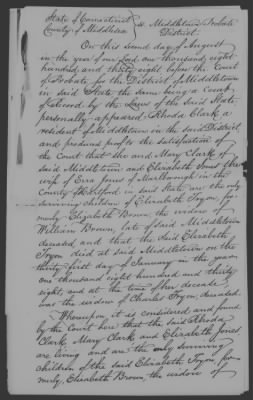 State of Connecticut } ss Middletown Probate
County of Middlesex } District.
On this second day of August
in the year of our Lord one thousand eight
hundred and thirty eight before the Court
of Probate for the District of Middletown
in said State the same being a Court
of Record by the Laws of the said State
personally appeared Rhoda Clark a
resident of Middletown in the said District,
and produced proof to the satisfaction of
the Court that she and Mary Clark of
said Middletown and Elizabeth Jones the
wife of Ezra Jones of Marlborough in the
County of Hartford in said State are the only
surviving children of Elizabeth Tryon, for-
merly Elizabeth Brown, the widow of
William Brown, late of said Middletown
deceased and that the said Elizabeth
Tryon died at said Middletown on the
thirty first day of January in the year
one thousand eight hundred and thirty
eight and at the time of her decease
was the widow of Charles Tryon, deceased.
Whereupon it is considered and found
by the Court here that the said Rhoda
Clark, Mary Clark and Elizabeth Jones
are living and are the only surviving
children of the said Elizabeth Tryon, for-
merly, Elizabeth Brown the widow of